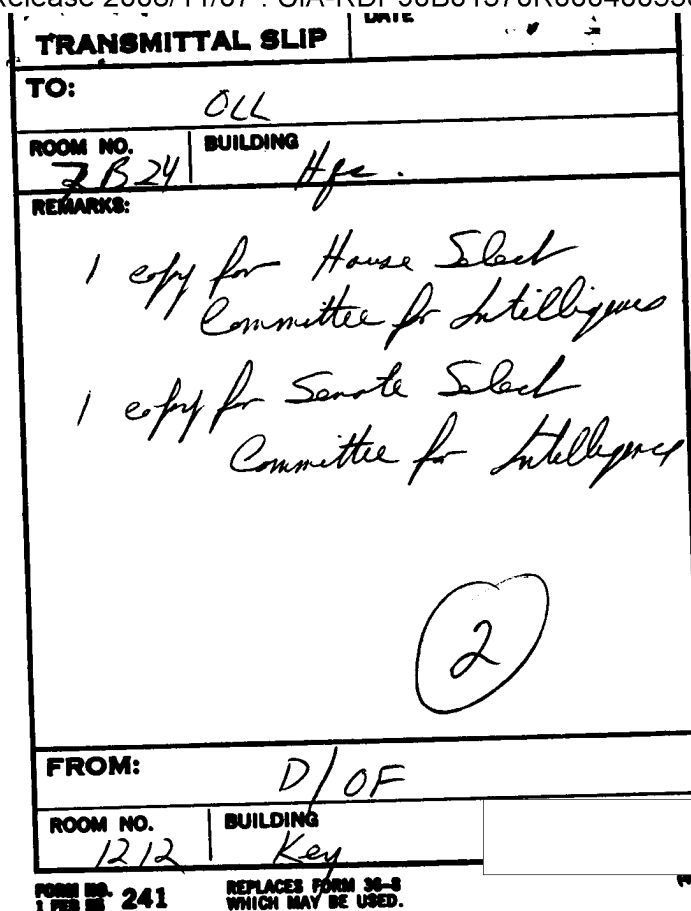 TRANSMITTAL SLIP
DATE
TO:
OLL
ROOM NO.
BUILDING
2B24
Hqs.
REMARKS:
1 copy for House Select
Committee for Intelligence
1 copy for Senate Select
Committee for Intelligence
2
FROM:
D/OF
ROOM NO.
BUILDING
1212
Key
FORM NO.
241
REPLACES FORM 36-8
1 FEB 55
WHICH MAY BE USED.